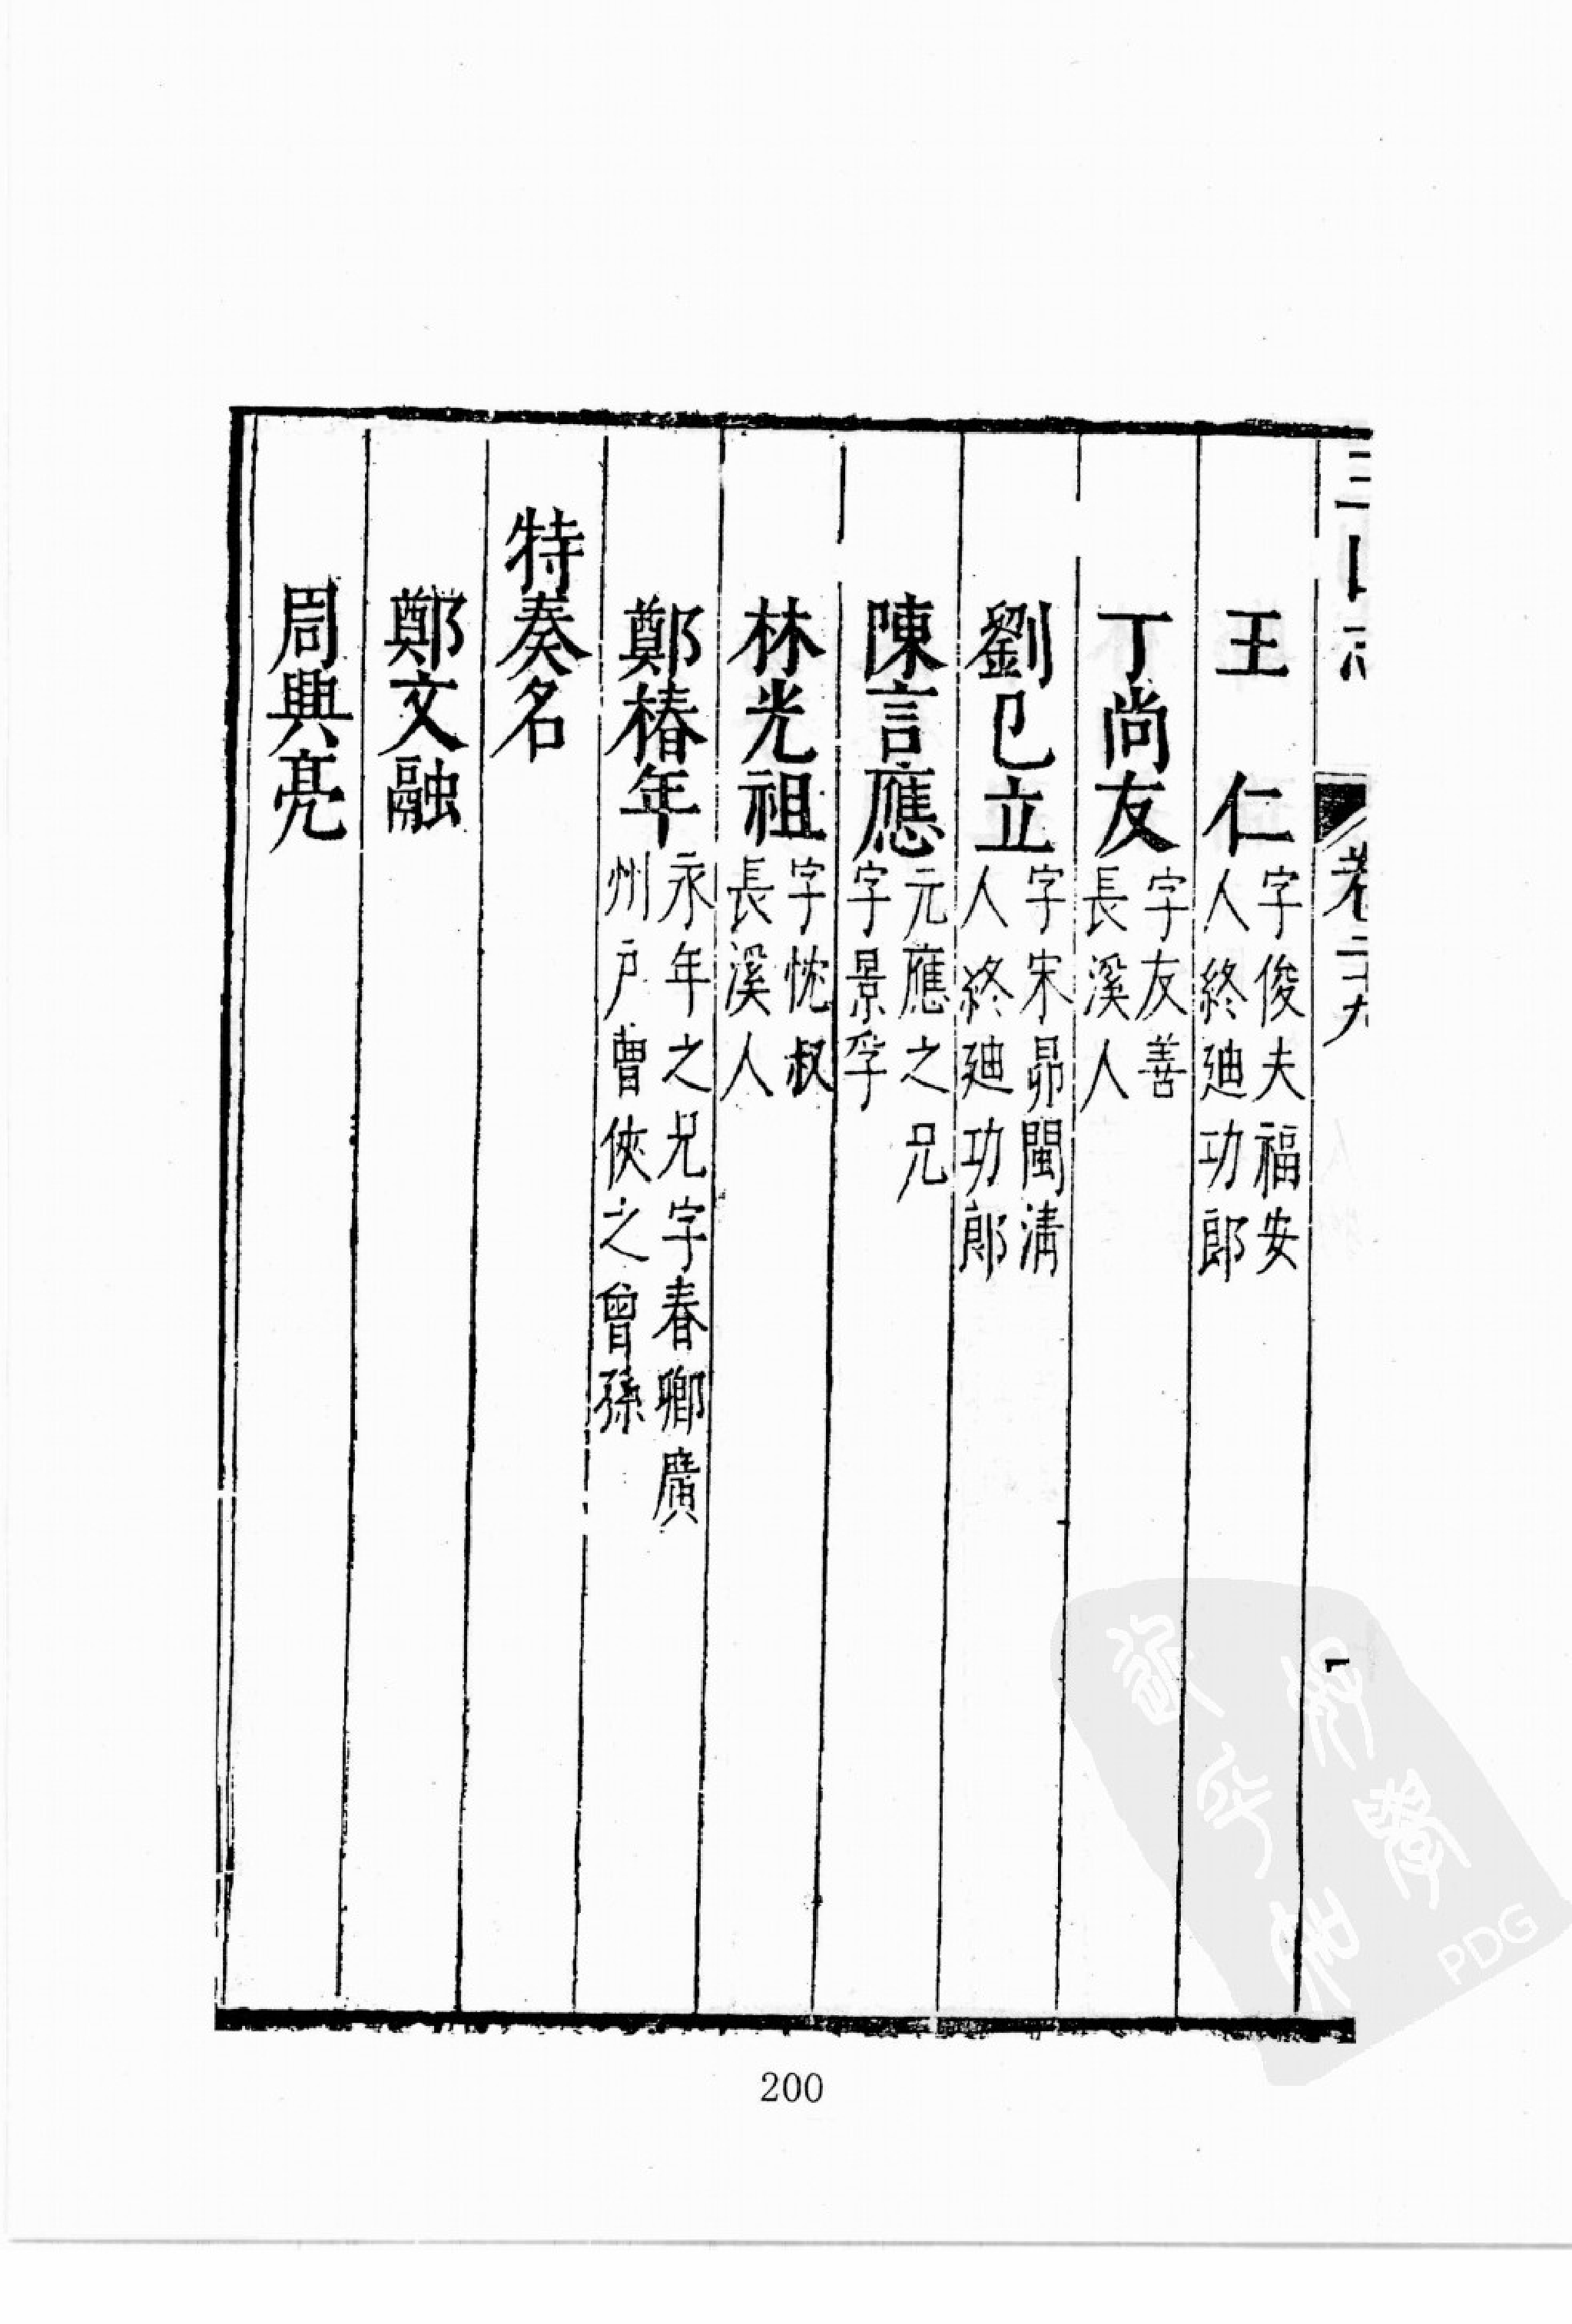 三山志 卷二十九
王 仁 字俊夫福安人終廸功郎
丁尚友 字友善長溪人
劉已立 字宋昴閩淸人終廸功郎
陳言應 元應之兄字景孚
林光祖 字忱叔長溪人
鄭椿年 永年之兄字春卿廣州户曹俠之曾孫
特奏名
鄭文融
周興亮
200
PDG